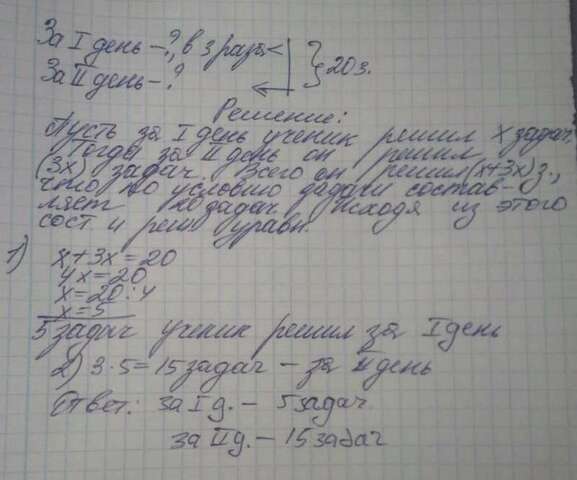 За I день - ?, в 3 раза <
За II день - ?
} 20 з.
Решение:
Пусть за I день ученик решил x задач,
Тогда за II день он решил
(3x) задач. Всего он решил (x+3x) з.,
что по условию задачи состав-
ляет 20 задач. Исходя из этого
сост и реш уравн.
1) x+3x=20
4x=20
x=20:4
x=5
5 задач ученик решил за I день
2) 3·5=15 задач - за II день
Ответ: за I д. - 5 задач
за II д. - 15 задач